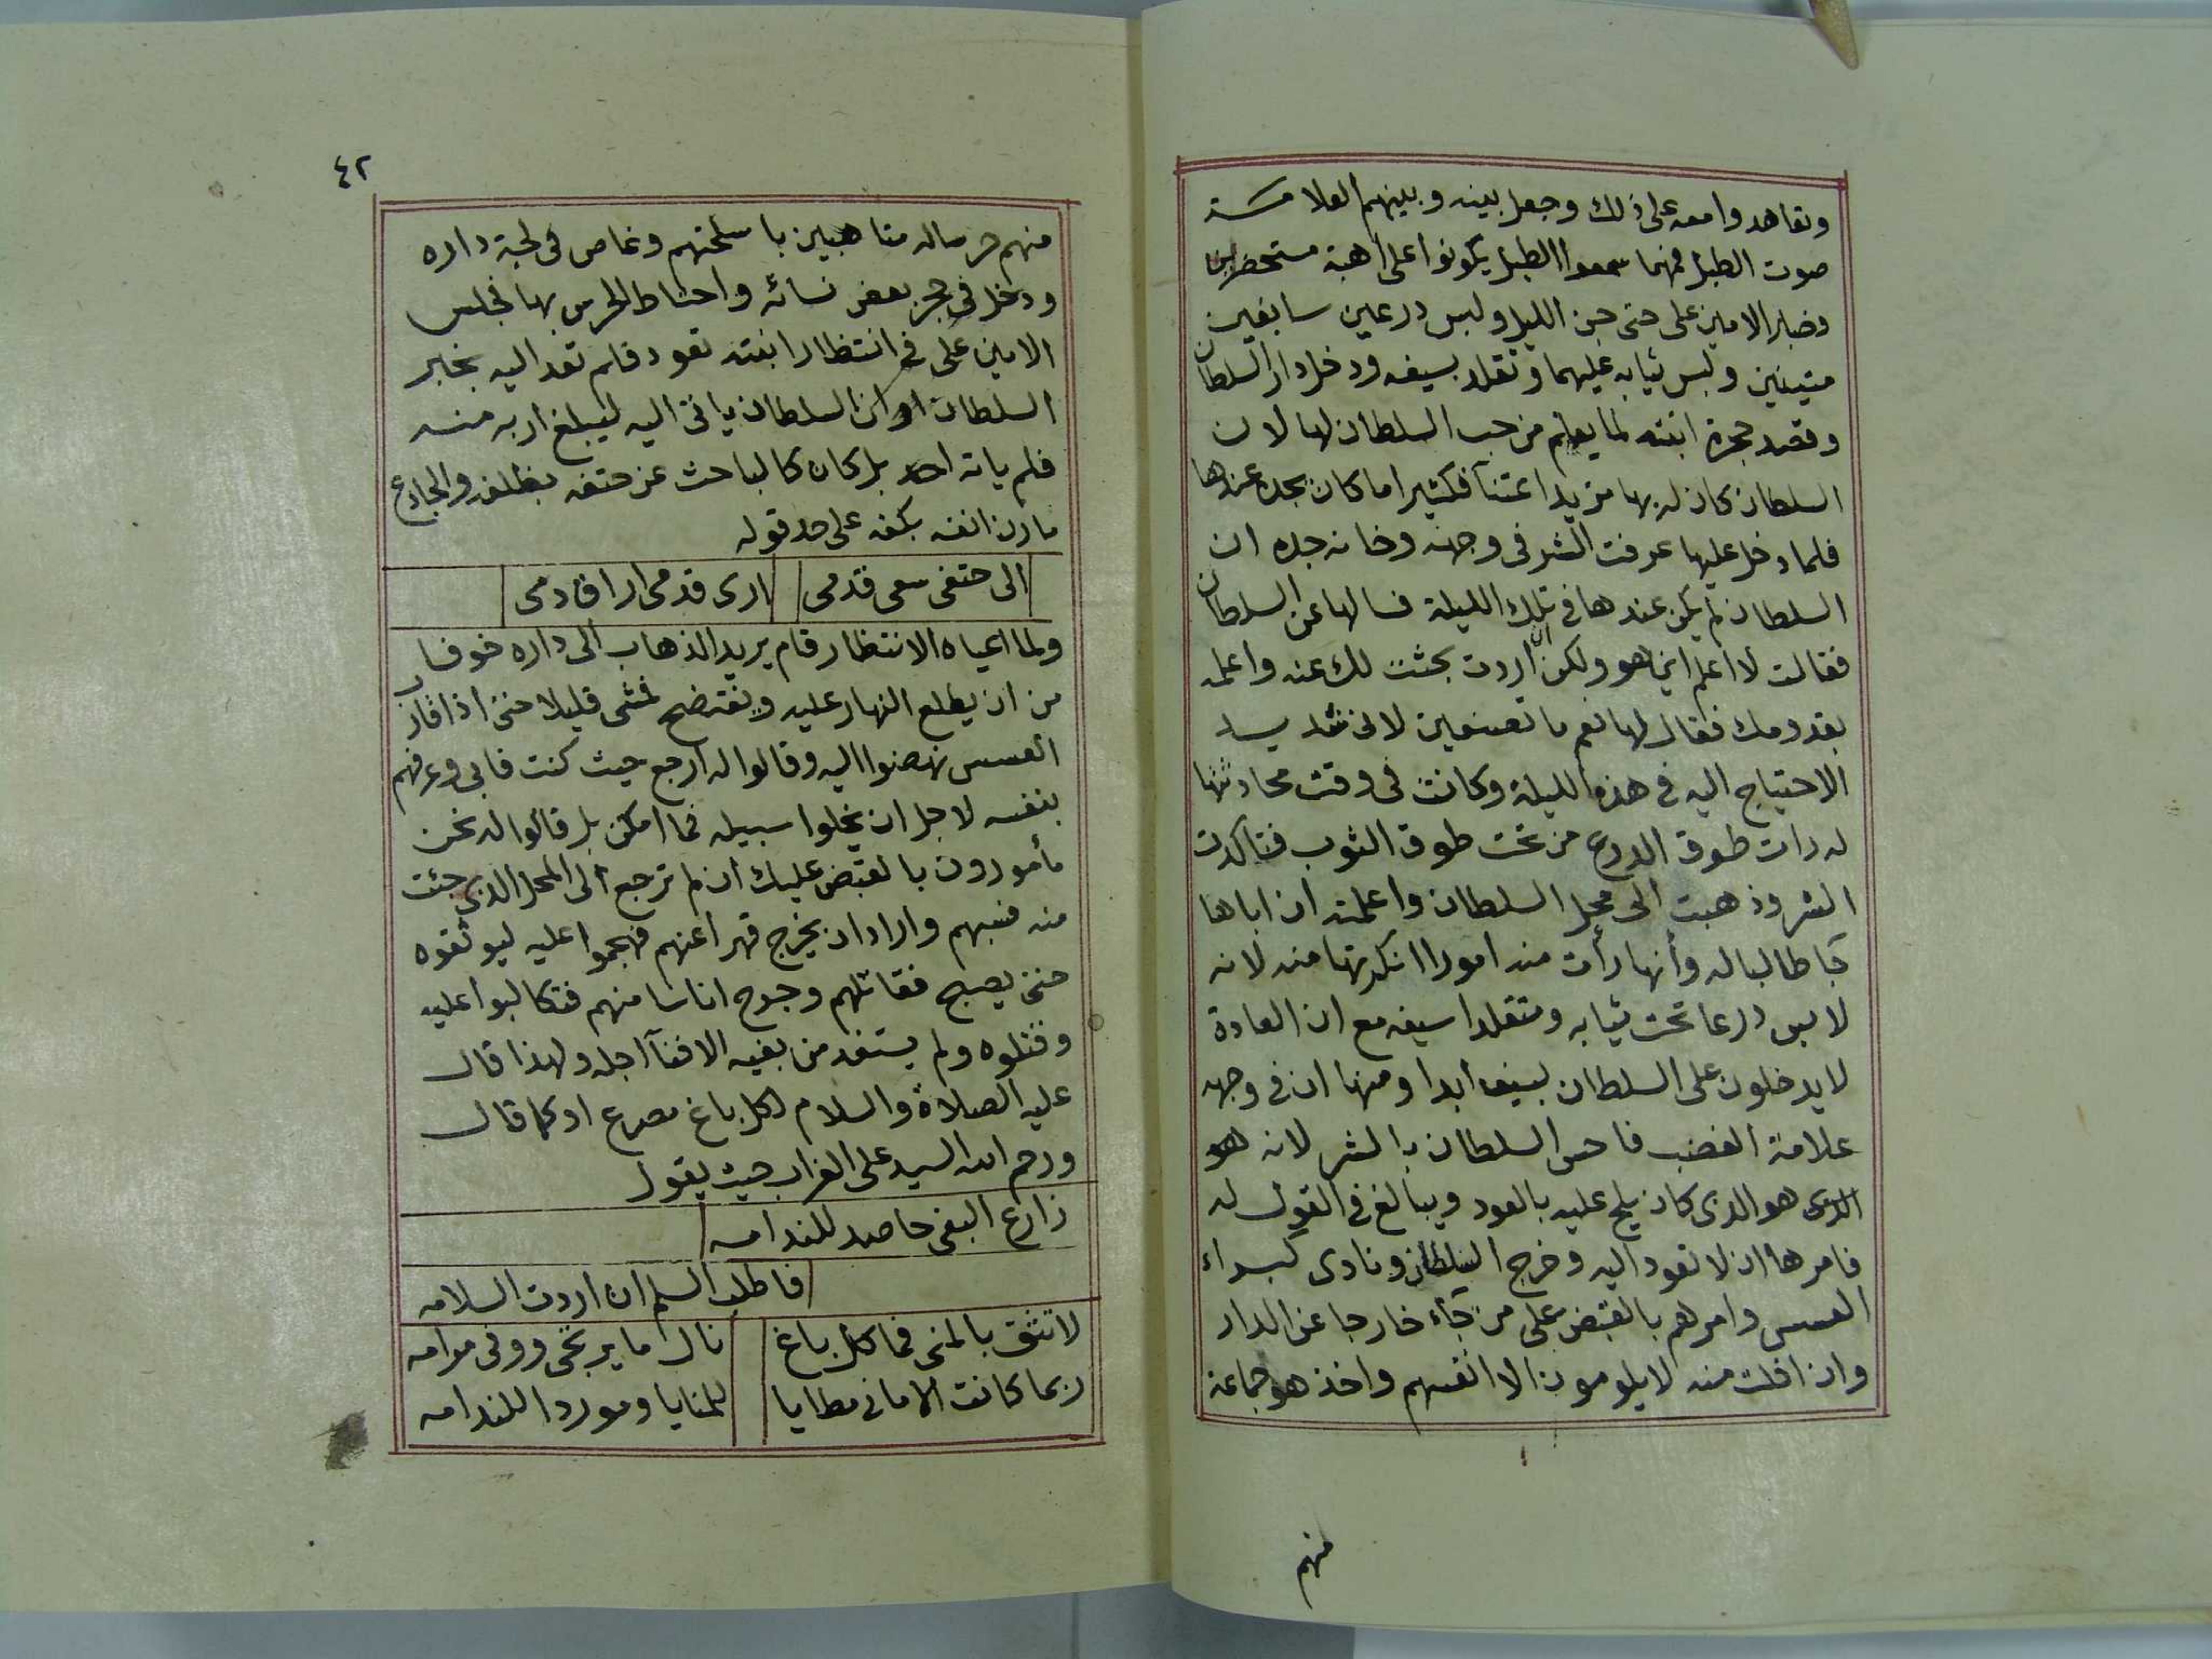 وتعاهدوا معه على ذلك وجعل بينه وبينهم العلامة
صوت الطبل فمهما سمعوا الطبل يكونوا على اهبة مستحضرين
وصابر الامين على حتى جن الليل ولبس درعين سابغين
متينين ولبس ثيابه عليهما وتقلد بسيفه ودخل دار السلطان
وقصد حجرة ابنته لما يعلم من حب السلطان لها لان
السلطان كان له بها مزيد اعتنآ فكثيرا ما كان يجده عندها
فلما دخل عليها عرفت الشر فى وجهه وخانه جده ان
السلطان لم يكن عندها فى تلك الليلة فسالها عن السلطان
فقالت لا اعلم اين هو ولكن ان اردت بحثت لك عنه واعلمه
بقدومك فقال لها نعم ما تصنعين لانى شديد
الاحتياج اليه فى هذه الليلة وكانت فى وقت محادثتها
له رات طوق الدرع من تحت طوق الثوب فتاكدت
الشر وذهبت الى محل السلطان واعلمته ان اباها
جآ طالبا له وأنها رأت منه امورا انكرتها منه لانه
لابس درعا تحت ثيابه ومتقلدا سيفه مع ان العادة
لا يدخلون على السلطان بسيف ابدا ومنها ان فى وجهه
علامة الغضب فاحس السلطان بالشر لانه هو
الذى هو الذى كان يلح عليه بالعود ويبالغ فى القول له
فامرها ان لا تعود اليه وخرج السلطان ونادى كبراء
العسس وامرهم بالقبض على من جآء خارجا عن الدار
وان افلت منه لا يلومون الا انفسهم واخذ هو جماعة
منهم
٤٢
منهم حرسا له متاهبين باسلحتهم وغاص فى لجة داره
ودخل فى حجر بعض نسائه واحتاط الحرس بها فجلس
الامين على فى انتظار ابنته تعود فلم تعد اليه بخبر
السلطان او ان السلطان ياتى اليه ليبلغ اربه منه
فلم ياته احد بل كان كالباحث عن حتفه بظلفه والجادع
مارن انفه بكفه على حد قوله
الى حتفى سعى قدمى ارى قدمى اراق دمى
ولما اعياه الانتظار قام يريد الذهاب الى داره خوفا
من ان يطلع النهار عليه ويفتضح فمشى قليلا حتى اذا قارب
العسس نهضوا اليه وقالوا له ارجع حيث كنت فابى وعرفهم
بنفسه لاجل ان يخلوا سبيله فما امكن بل قالوا له نحن
مأمورون بالقبض عليك ان لم ترجع الى المحل الذى جئت
منه فسبهم واراد ان يخرج قهرا عنهم فهجموا عليه ليوثقوه
حتى يصبح فقاتلهم وجرح اناسا منهم فتكالبوا عليه
وقتلوه ولم يستفد من بغيه الا فنآ اجله ولهذا قال
عليه الصلاة والسلام لكل باغ مصرع او كما قال
ورحم الله السيد على الغراب حيث يقول
زارع البغى حاصد للندامه
فاطلب السلم ان اردت السلامه
لا تثق بالمنى فما كل باغ نال ما يرتجى ووفى مرامه
ربما كانت الامانى مطايا للمنايا وموردا للندامه